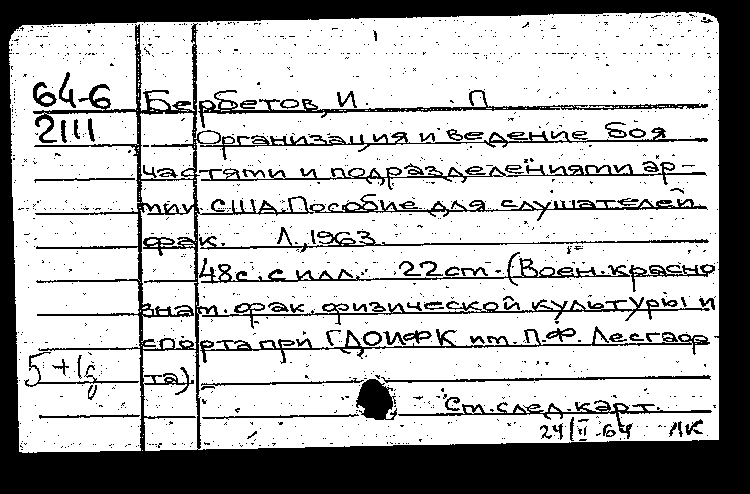 64-6 Бербетов, И. П.
2111 Организация и ведение боя
частями и подразделениями ар-
мии США. Пособие для слушателей
фак. Л., 1963.
48с. с илл. 22см. (Воен. красно
знам. фак. физической культуры и
спорта при ГДОИФК им. П.Ф. Лесгаф-
та).
5+1
См. след. карт.
24/II-64 ЛК